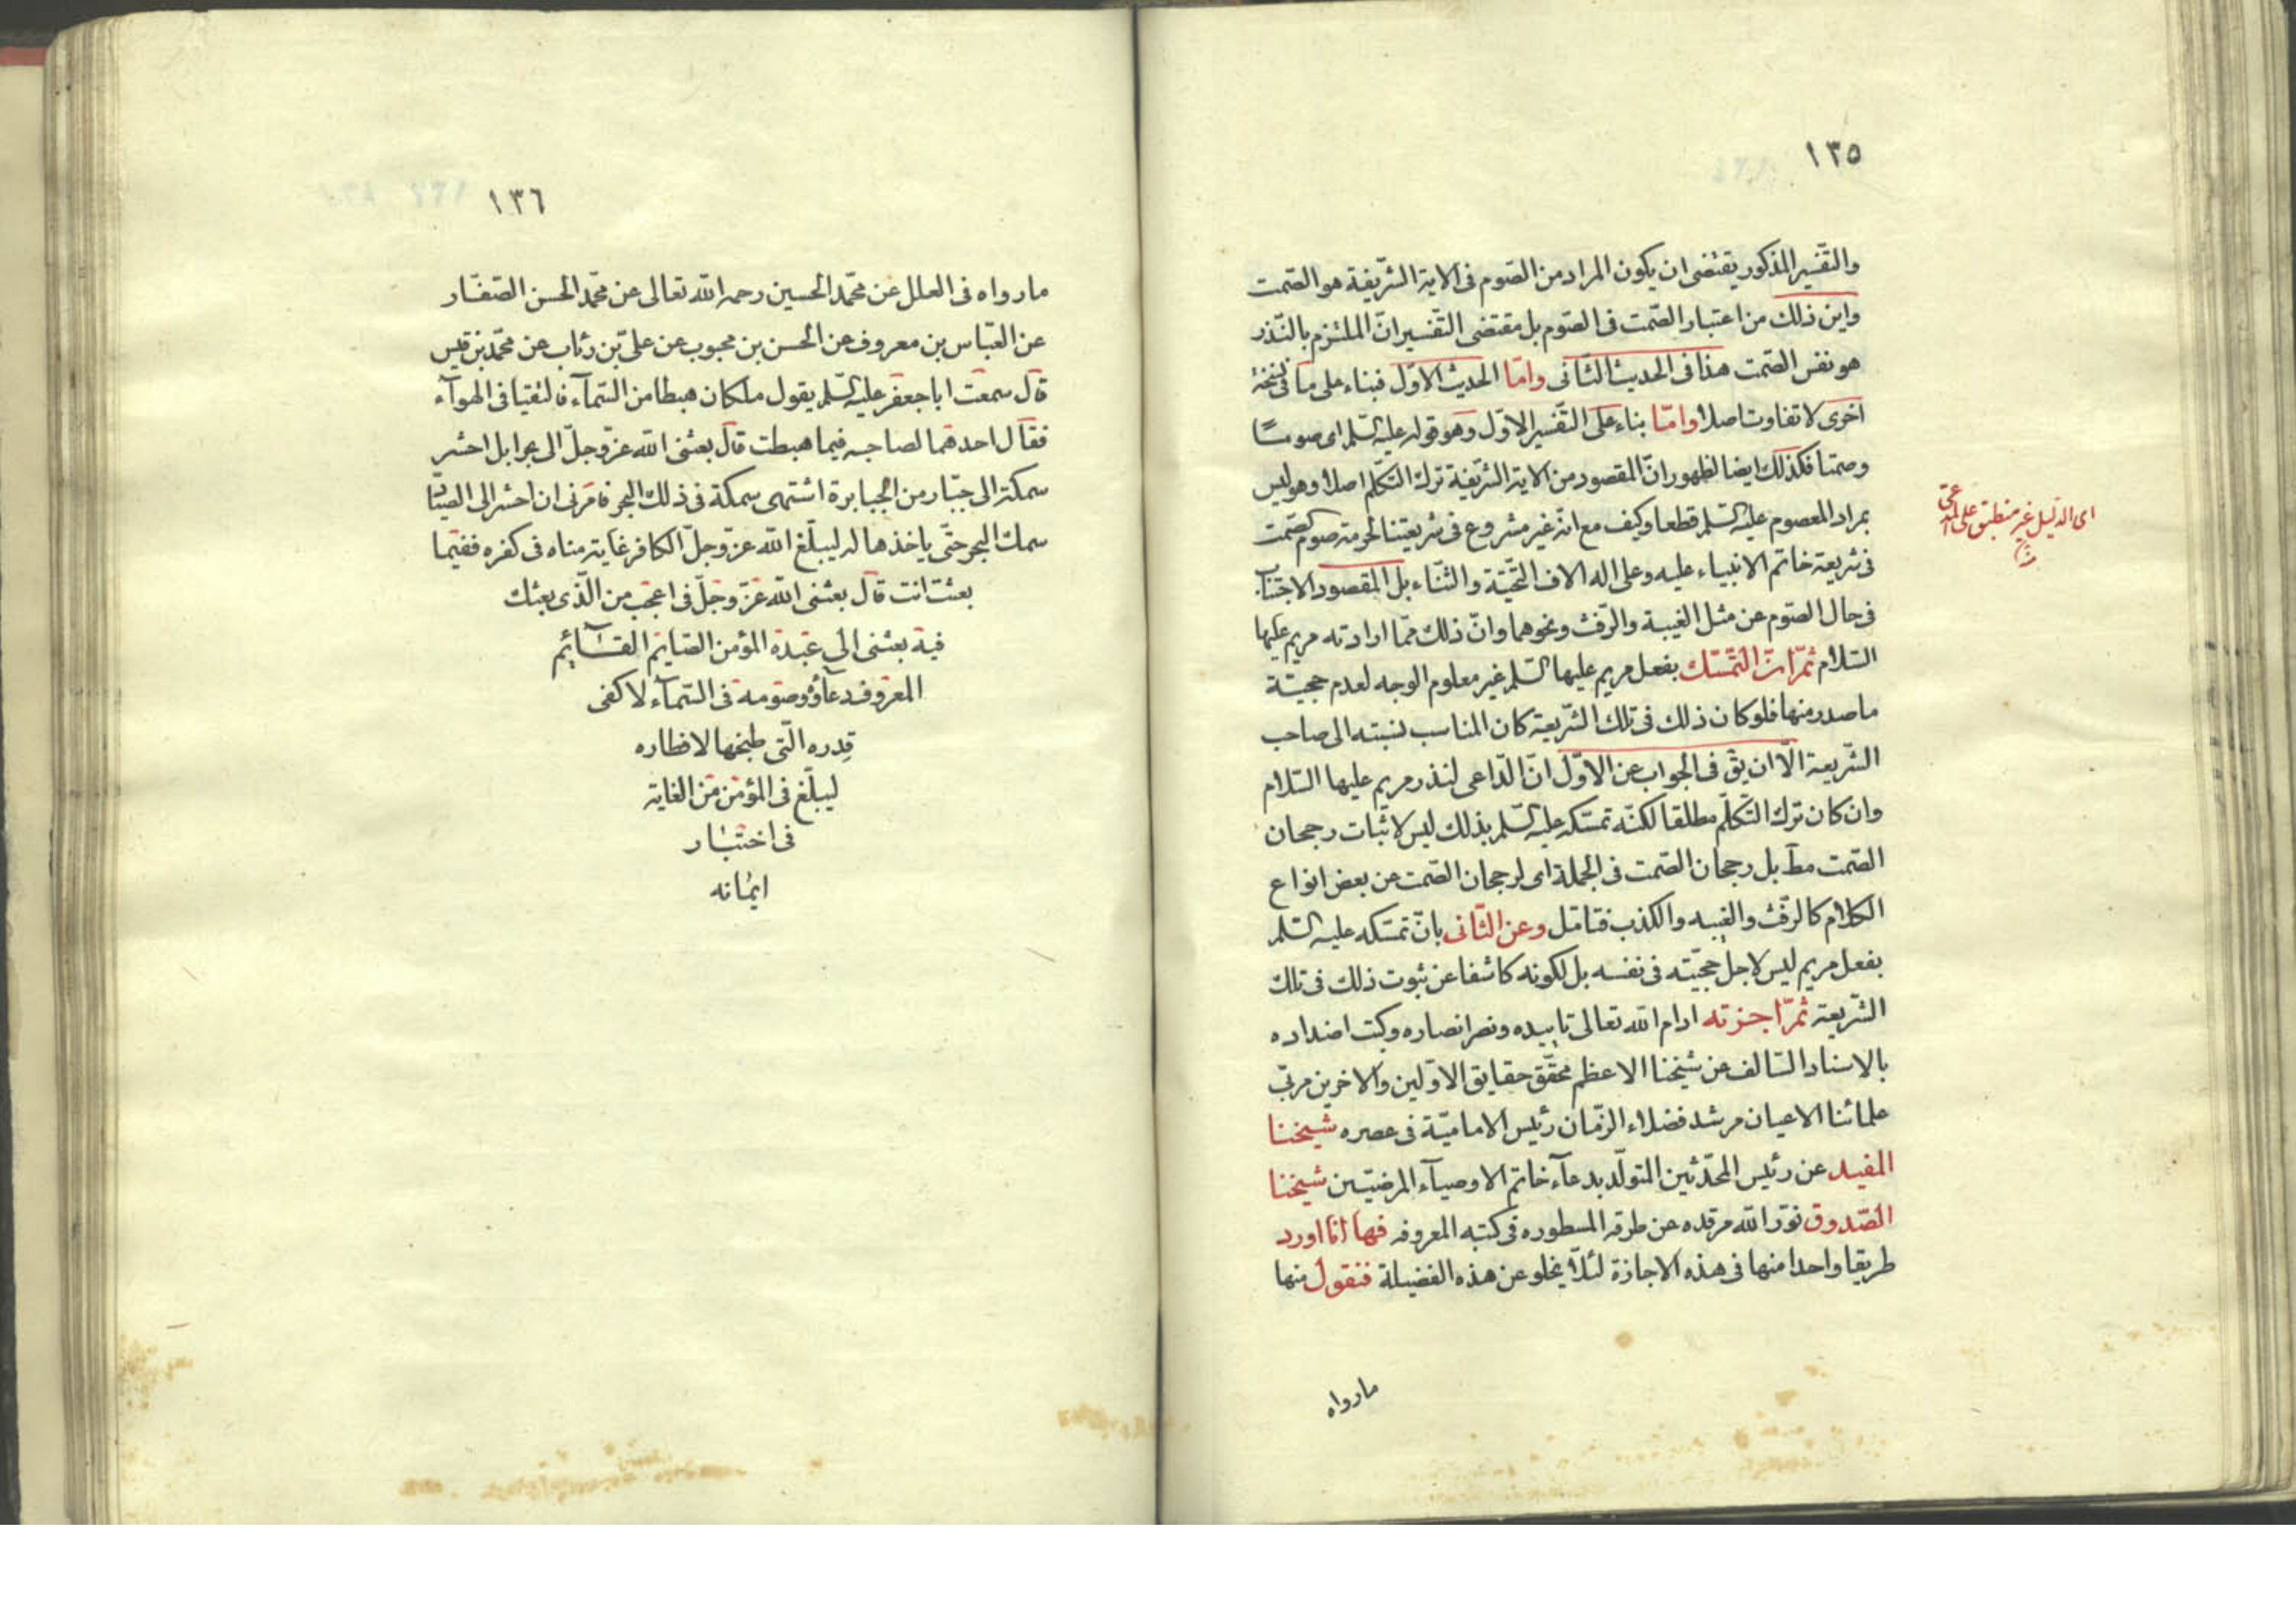 ١٣٥
والتفسير المذكور يقتضى ان يكون المراد من الصوم فى الاية الشريفة هو الصمت
واين ذلك من اعتبار الصمت فى الصوم بل مقتضى التفسير ان الملتزم بالنذر
هو نفس الصمت هذا فى الحديث الثانى واما الحديث الاول فبناء على ما فى نسخة
اخرى لا تفاوت اصلا واما بناء على التفسير الاول وهو قوله عليه السلم اى صوما
وصمتا فكذلك ايضا لظهور ان المقصود من الاية الشريفة ترك التكلم اصلا وهو ليس
بمراد المعصوم عليه السلم قطعا وكيف مع انه غير مشروع فى شريعتنا لحرمة صوم الصمت
فى شريعة خاتم الانبياء عليه وعلى اله الاف التحية والثناء بل المقصود الاجتناب
فى حال الصوم عن مثل الغيبة والرفث ونحوهما وان ذلك مما ارادته مريم عليها
السلام ثم ان التمسك بفعل مريم عليها السلم غير معلوم الوجه لعدم حجية
ما صدر منها فلو كان ذلك فى تلك الشريعة كان المناسب نسبته الى صاحب
الشريعة الا ان يق فى الجواب عن الاول ان الداعى لنذر مريم عليها السلام
وان كان ترك التكلم مطلقا لكنه تمسكه عليه السلم بذلك ليس لاثبات رجحان
الصمت مط بل رجحان الصمت فى الجملة اى لرجحان الصمت عن بعض انواع
الكلام كالرفث والغيبه والكذب فتامل وعن الثانى بان تمسكه عليه السلم
بفعل مريم ليس لاجل حجيته فى نفسه بل لكونه كاشفا عن ثبوت ذلك فى تلك
الشريعة ثم اجزته ادام الله تعالى تاييده ونصر انصاره وكبت اضداده
بالاسناد السالف عن شيخنا الاعظم محقق حقايق الاولين والاخرين مربى
علمائنا الاعيان مرشد فضلاء الزمان رئيس الامامية فى عصره شيخنا
المفيد عن رئيس المحدثين المتولد بدعاء خاتم الاوصياء المرضيين شيخنا
الصدوق نور الله مرقده عن طرقه المسطوره فى كتبه المعروفه فها انا اورد
طريقا واحدا منها فى هذه الاجازة لئلا يخلو عن هذه الفضيلة فنقول منها
مارواه
اى الدليل غير منطبق على المدعى
١٣٦
مارواه فى العلل عن محمد الحسين رحمه الله تعالى عن محمد الحسن الصفار
عن العباس بن معروف عن الحسن بن محبوب عن على بن رئاب عن محمد بن قيس
قال سمعت ابا جعفر عليه السلم يقول ملكان هبطا من السمآء فالتقيا فى الهوآء
فقال احدهما لصاحبه فيما هبطت قال بعثنى الله عز وجل الى بحر ابل احشر
سمكة الى جبار من الجبابرة اشتهى سمكة فى ذلك البحر فامرنى ان احشر الى الصياد
سمك البحر حتى ياخذها له ليبلغ الله عز وجل الكافر غاية مناه فى كفره ففيما
بعثت انت قال بعثنى الله عز وجل فى اعجب من الذى بعثك
فيه بعثنى الى عبده المؤمن الصايم القائم
المعروف دعاؤه وصومه فى السمآء لاكفى
قدره التى طبخها لافطاره
ليبلغ فى المؤمن من الغاية
فى اختبار
ايمانه